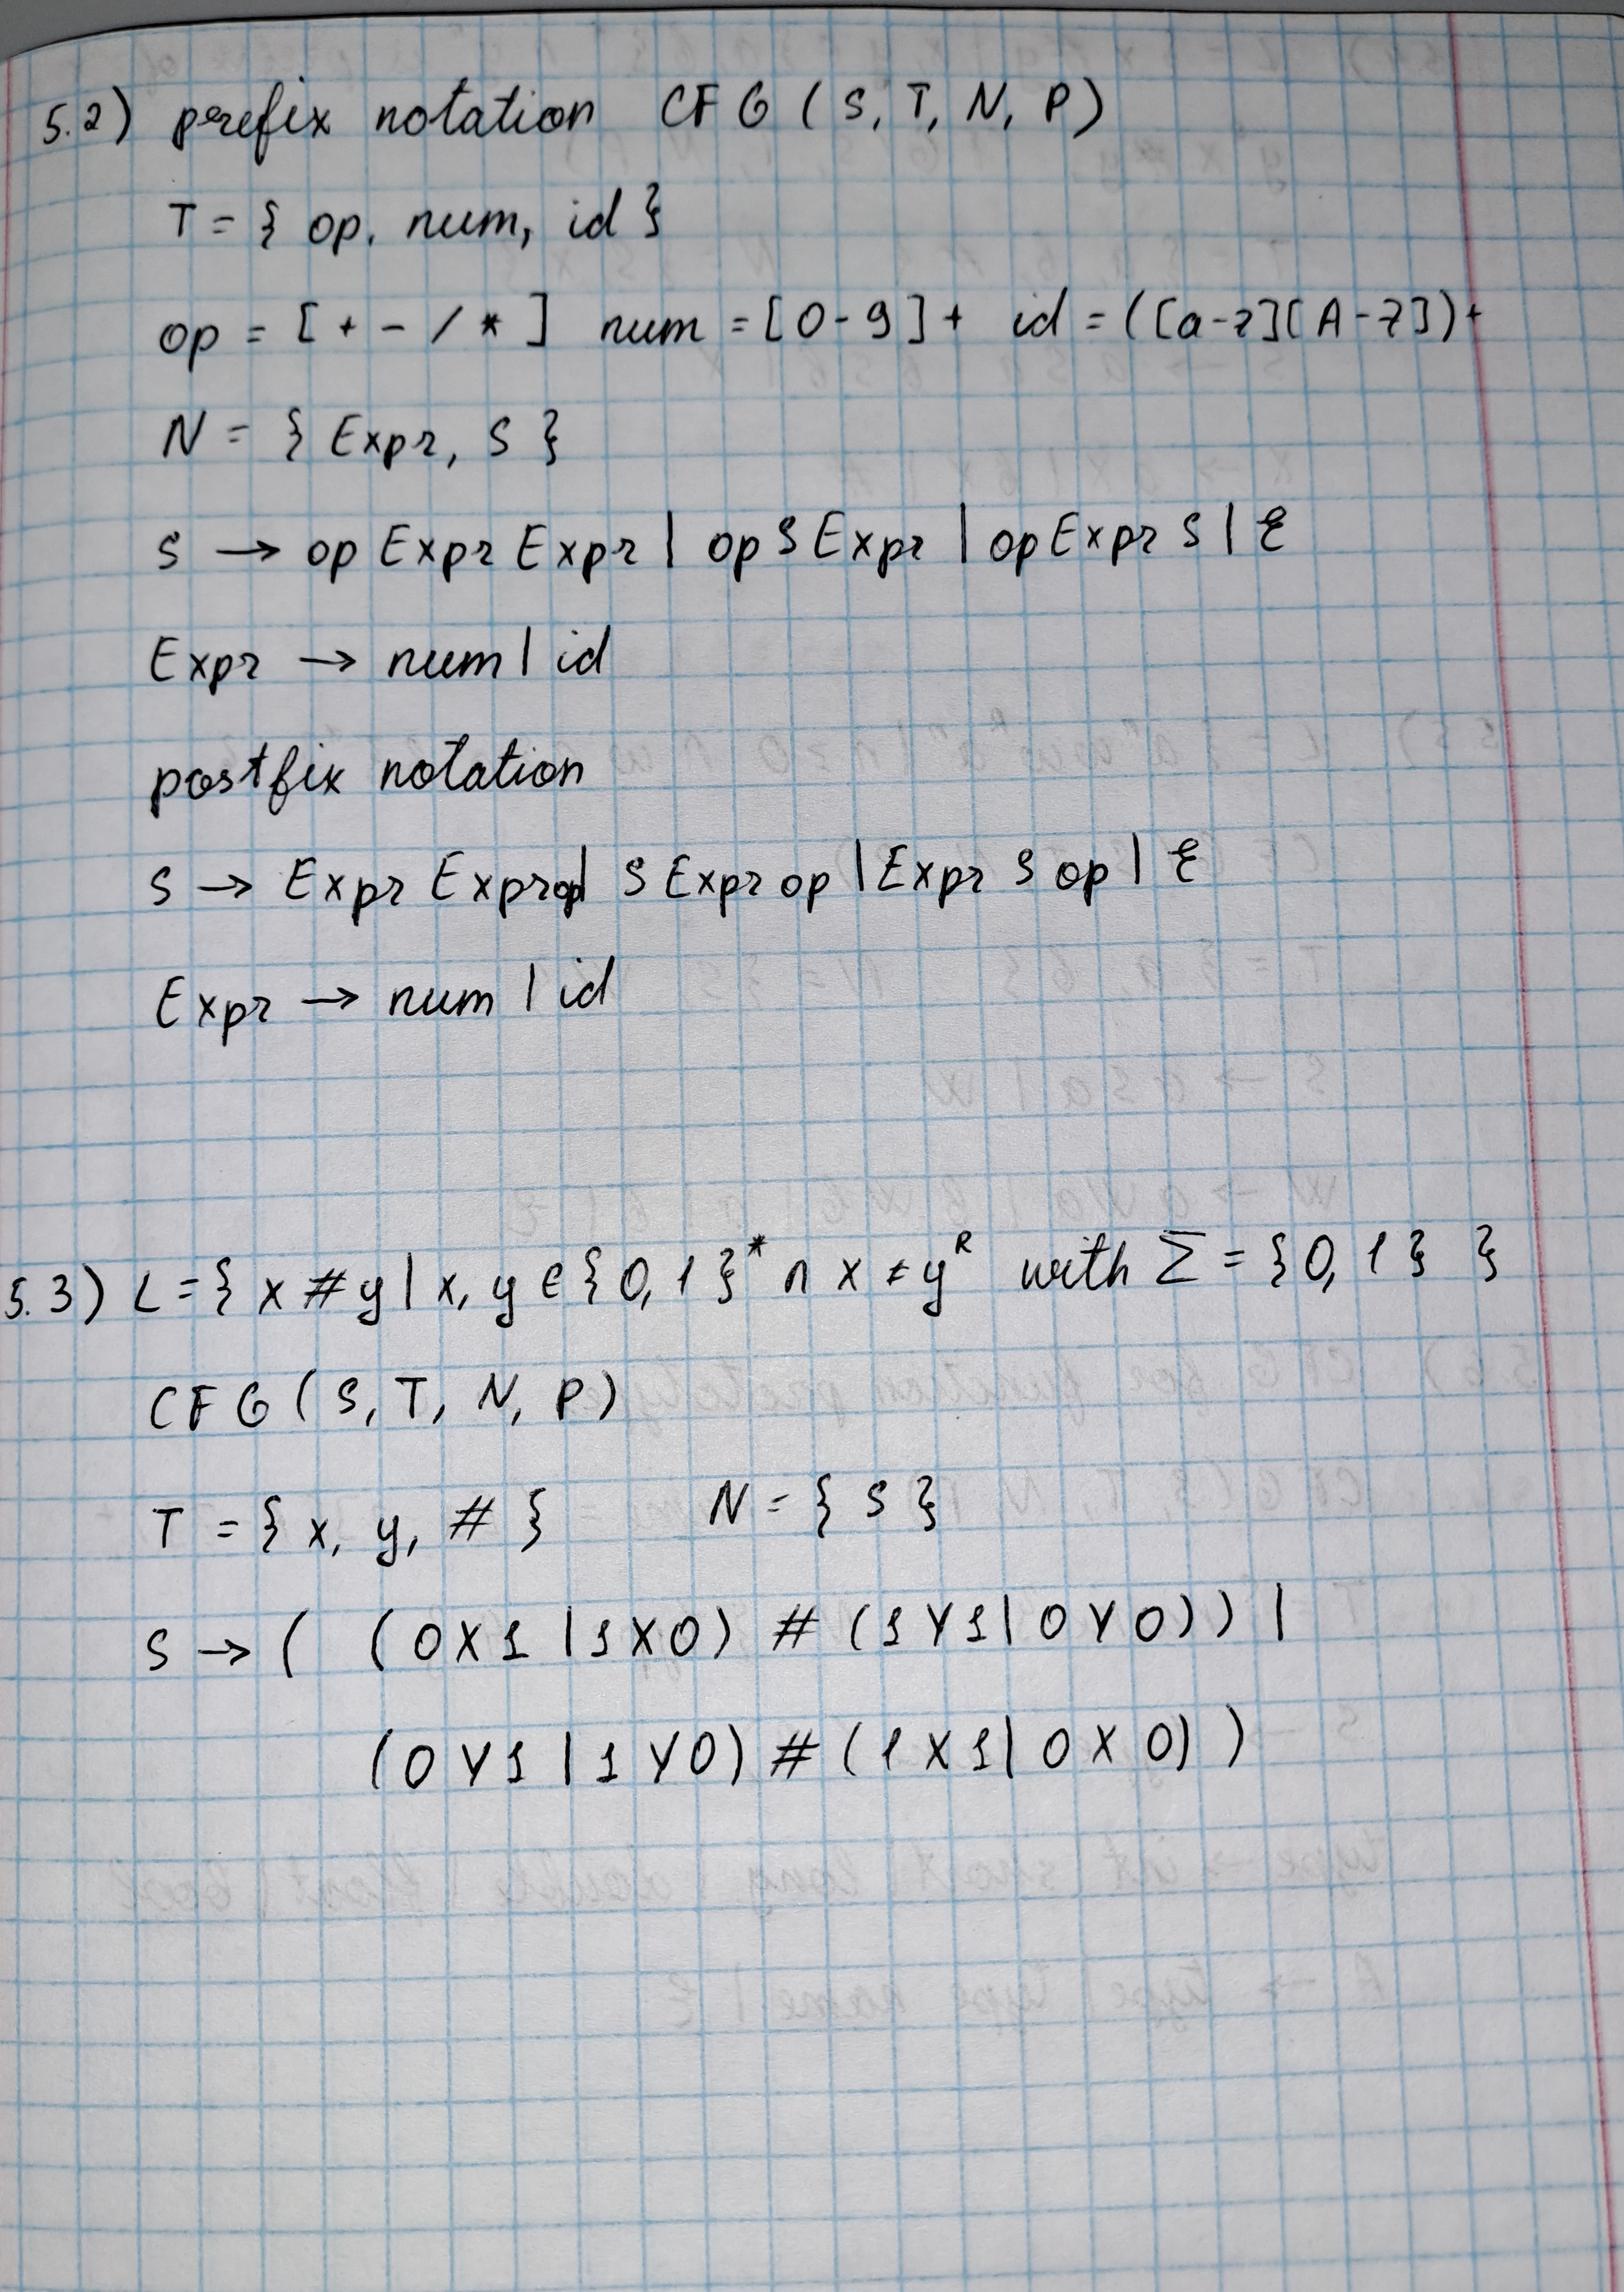 5.2) prefix notation CFG (S, T, N, P)
T = { op, num, id }
op = [ + - / * ] num = [0-9]+ id = ([a-z][A-Z])+
N = { Expr, S }
S → op Expr Expr | op S Expr | op Expr S | ε
Expr → num | id
postfix notation
S → Expr Expr op | S Expr op | Expr S op | ε
Expr → num | id
5.3) L = { x # y | x, y ∈ {0, 1}* ∧ x ≠ y^R with Σ = {0, 1} }
CFG (S, T, N, P)
T = { x, y, # } N = { S }
S → ( (0X1 | 1X0) # (1Y1 | 0Y0)) |
(0Y1 | 1Y0) # (1X1 | 0X0) )